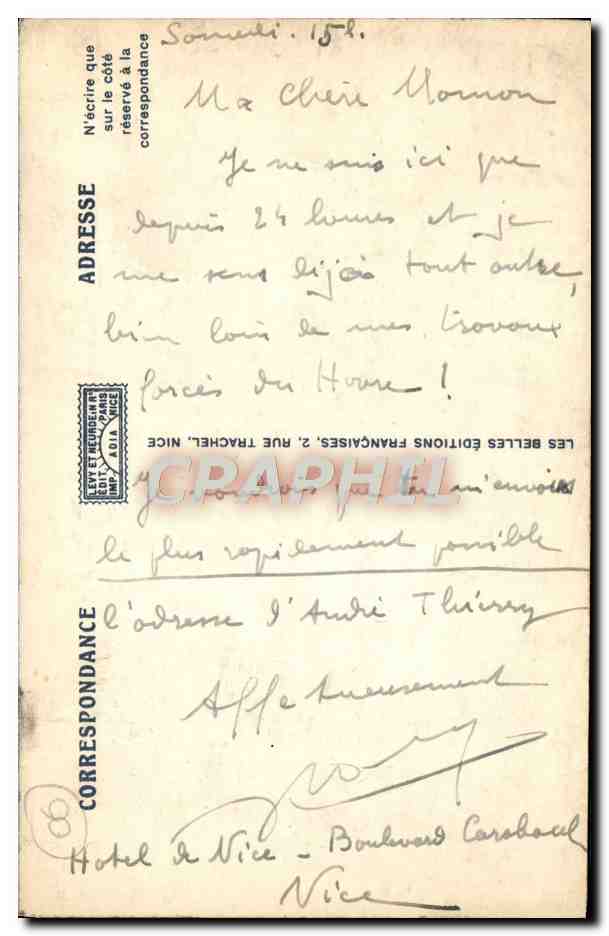 Samedi. 15h.
Ma chère Maman
Je ne suis ici que
depuis 24 heures et je
me sens déjà tout autre,
bien loin de mes travaux
forcés du Havre !
Je voudrais que tu m'envoies
le plus rapidement possible
l'adresse d'André Thierry
Affectueusement
Hotel de Nice - Boulevard Carabacel
Nice
N'écrire que
sur le côté
réservé à la
correspondance
ADRESSE
LEVY ET NEURDEIN RS
ÉDIT. PARIS
IMP. ADIA NICE
CORRESPONDANCE
LES BELLES ÉDITIONS FRANÇAISES, 2, RUE TRACHEL, NICE
CPARPHIL